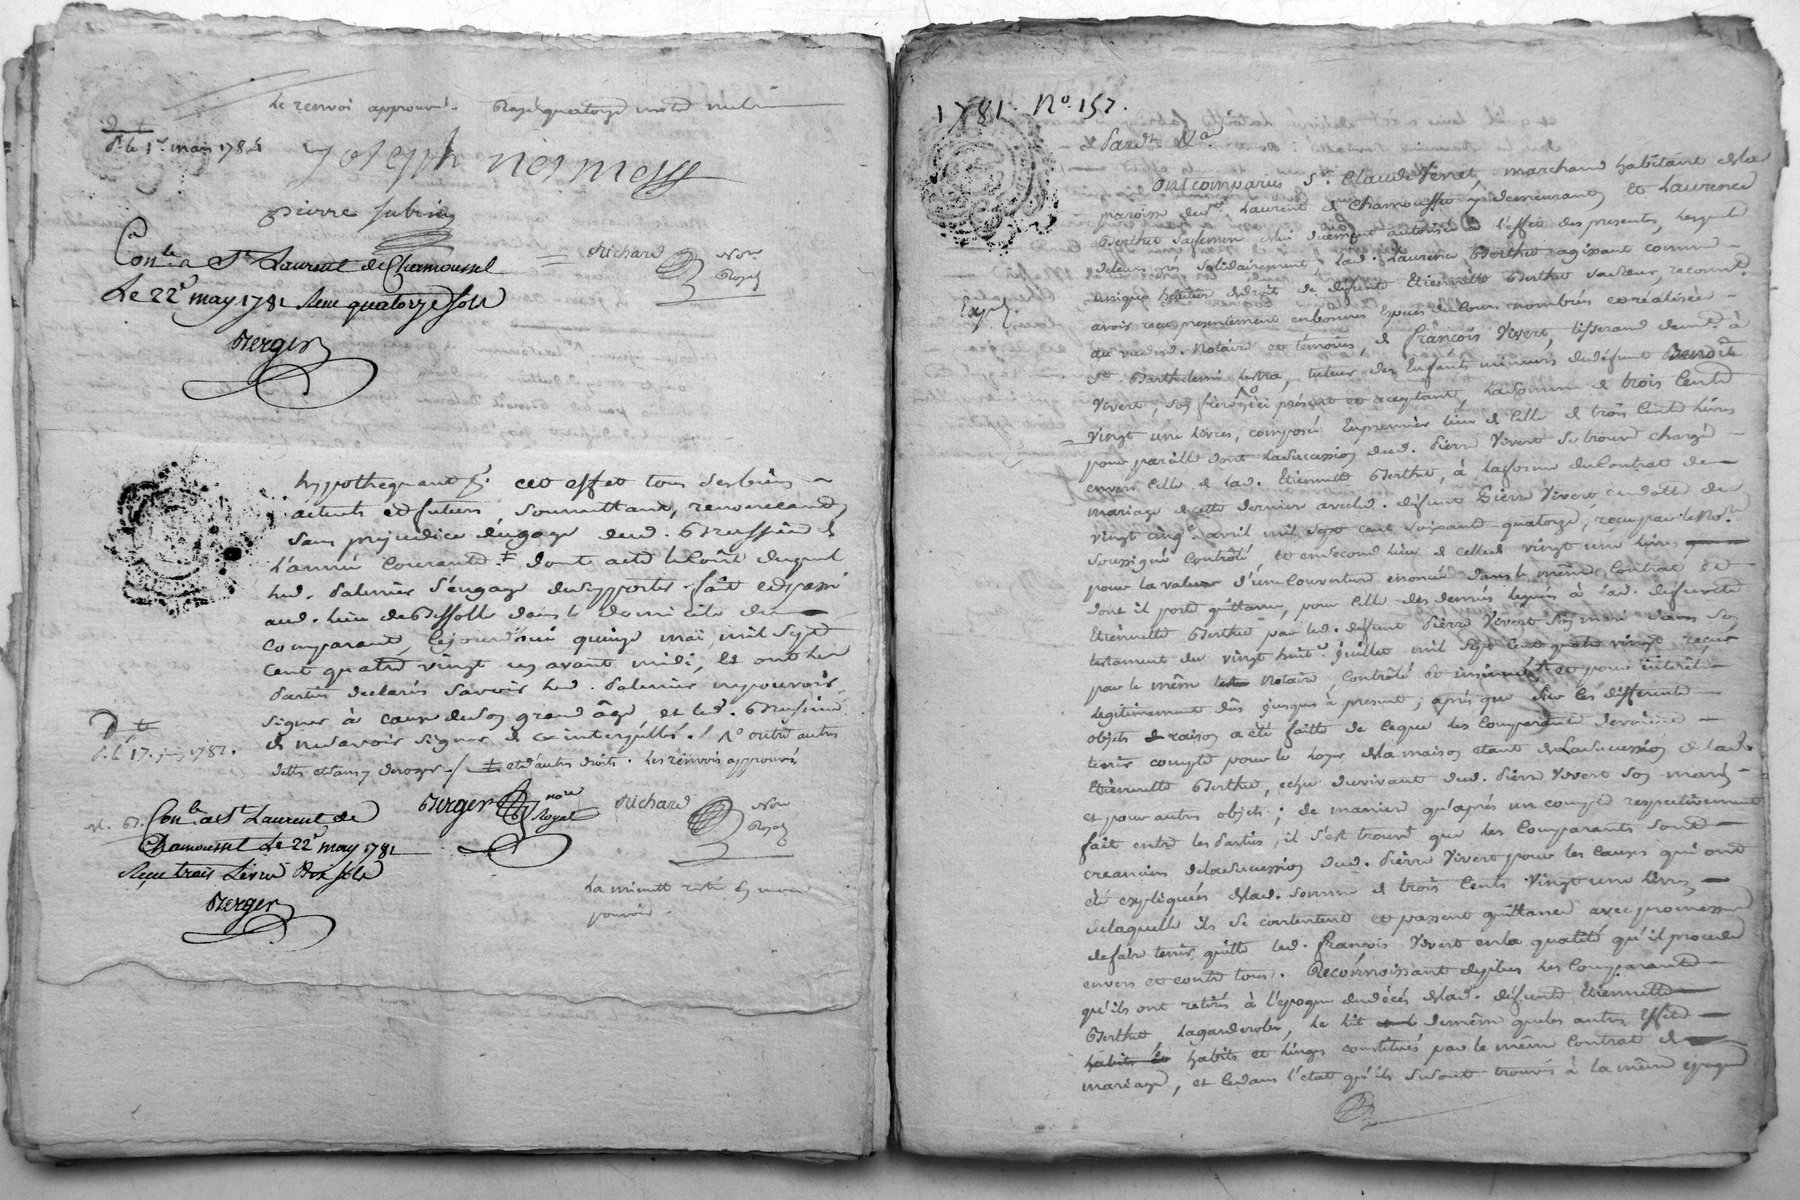 Le renvoi approuvé. Rayé quatorze mots nuls
D. le 1er mars 1785
Joseph
pierre
Richard Nore Royal
Conlé a St Laurent de Chamousset
Le 22e may 1781 Reçu quatorze sols
Berger
hypothequant pr. cet effet tous ses biens
actuels et futurs, soumettant, renonceant,
sans prejudice du gage dud. &
l'année courante ‡ dont acte le coût duquel
led. Palmier s'engage de supporter fait et passé
aud. lieu de dans le domicile du
comparant, cejourd'hui quinze maï, mil sept
cent quatre vingt un avant midi, Et ont les
Parties declarés savoir led. Palmier ne pouvoir
signer à cause de son grand âge et led.
de ne savoir signer de ce interpellés. / outre autres
dette et sans y deroger / ‡ et d'autres droits. Les renvois approuvés
D
D. le 17. 1782.
Berger nore Royal
Richard Nore Royal
Conlé a St Laurent de
Chamousset Le 22e may 1781
Reçu trois Livres Dix sols
Berger
La minute reste en mon
pouvoir.
1781. No. 157.
Pardt Ves
Ont comparus Sr. Claude Verrat, marchand habitant de la
paroisse de St. Laurent de Chamousset y demeurant, et Laurence
Berthet sa femme de lui duement autorisée à l'effet des presentes, lesquels
de leurs grés solidairement, lad. Laurence Berthet agissant comme
unique héritiere de droit de defunte Etiennette Berthet sa soeur, reconnt.
Expd.
avoir reçu presentement en bonnes Especes de Cours nombrés et réalisée
au vu dud. Notaire et témoins, de François Vivert, tisserand demt. à
St. Barthelemi Lestra, tuteur des Enfants mineurs de defunt Benoit
Vivert, son frere, ici présent et aceptant, la somme de trois Cents
vingt une livres, composée En premier lieu de Celle de trois Cents livres
pour pareille dont la succession dud. Pierre Vivert se trouve chargé
envers Celle de lad. Etiennette Berthet, à la forme du Contrat de
mariage de cette derniere avec led. défunt Pierre Vivert, en datte du
vingt cinq avril mil sept cent soixante quatorze, reçu par le Nore
soussigné Contrôlé, et en second lieu de celle de vingt une livres
pour la valeur d'une Couverture énoncée dans le même Contrat et
dont il porte quittance, pour Celle des denrées legués à lad. defunte
Etiennette Berthet par led. défunt Pierre Vivert son mari dans son
testament du vingt huit juillet mil sept Cent quatre vingt, reçu
par le même Notaire, Contrôlé et insinué, et pour interêts
legitimement dûs jusques à present; après que sur les differents
objets & raison a été faitte de ceque les Comparants devoient
tenir compte pour le loyer de la maison etant de la succession de lad.
Etiennette Berthet, echu du vivant dud. Pierre Vivert son mari,
et pour autres objets; de maniere qu'après un compte respectivement
fait entre les Parties, il s'est trouvé que les Comparants sont
creanciers de la succession dud. Pierre Vivert pour les causes qui ont
été expliquées de lad. somme de trois Cents Vingt une livres,
de laquelle ils se contentent et passent quittance avec promesse
de faire tenir quitte led. François Vivert en la qualité qu'il procede
envers et contre tous. Reconnoissant de plus les Comparants
qu'ils ont retirés à l'epoque du décés de lad. défunte Etiennette
Berthet la garderobe, le lit et le de même que les autres Effets
habits & habits et linges constitués par le même Contrat de
mariage, et ce dans l'état qu'ils se sont trouvés à la même epoque